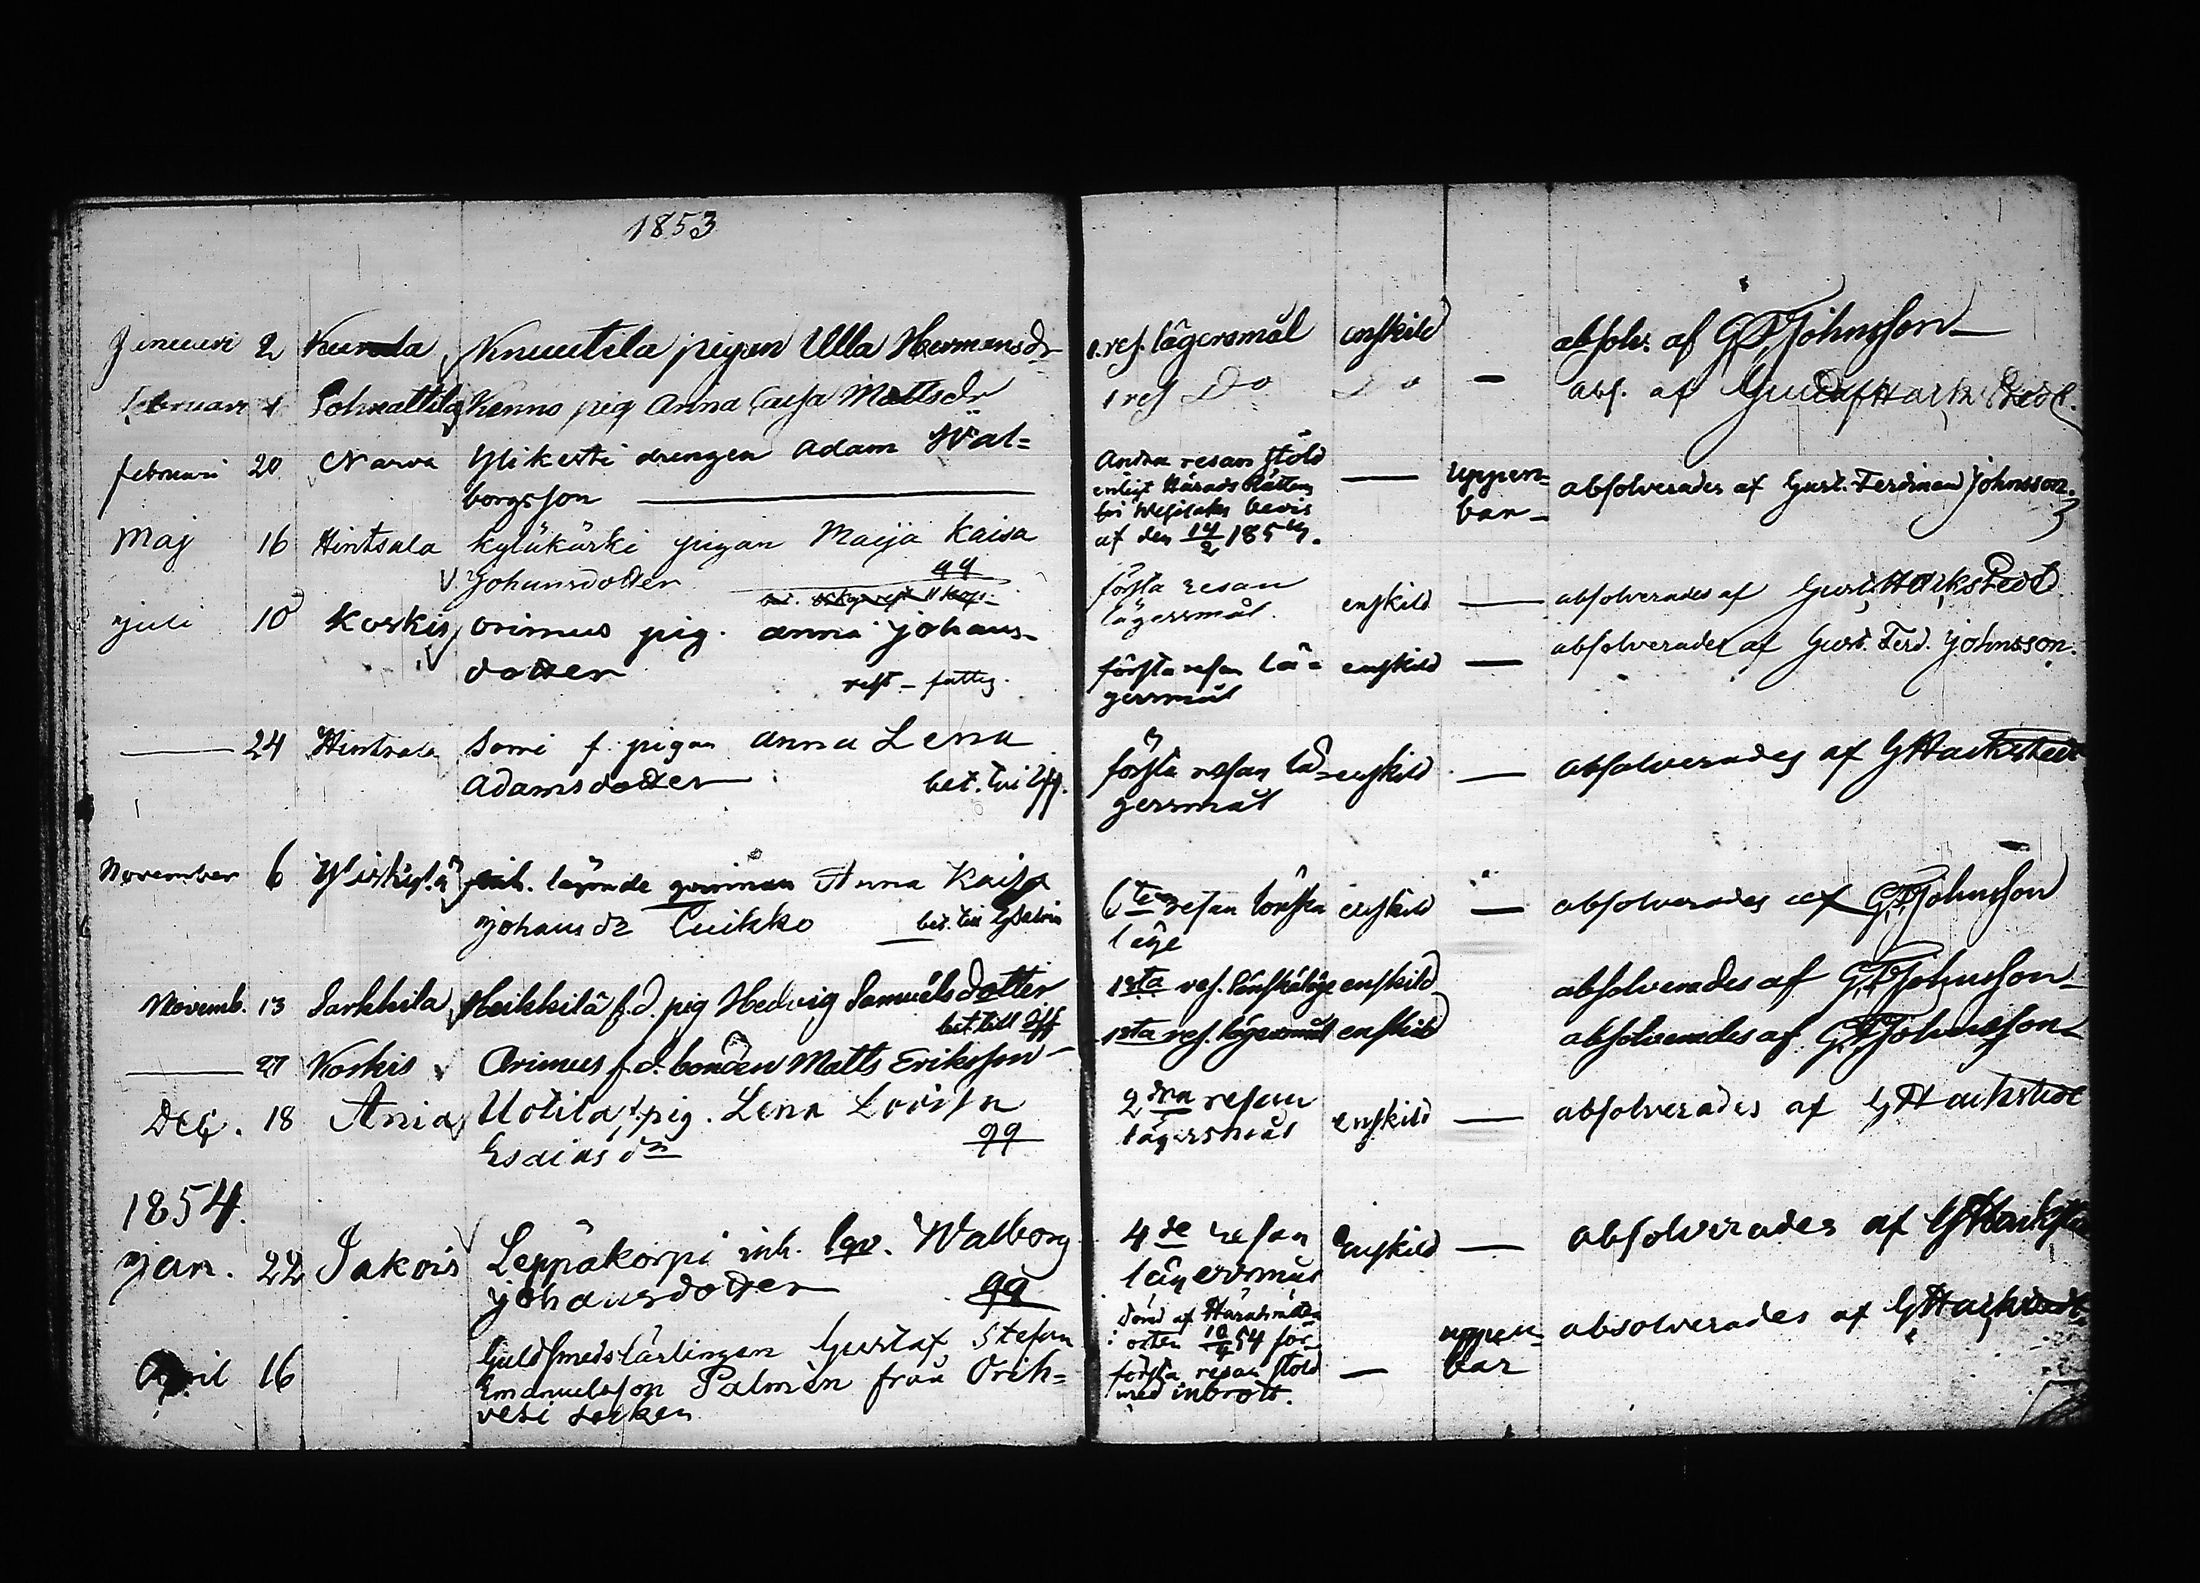 1853
Januari 2 Kurala Knuutila pigan Ulla Hermansdr 1. res. lägersmål enskild absolv. af G F Johnsson
Februari Pohnattila Kenno pig Anna Caisa Mattsdr 1 res Do Do — abs. af Gustaf Hackstedt.
Februari 20 Narva Ylikerti drengen Adam Wal=
borgsson
Andra resan stöld
enligt Härads Rättens
bevis
af den 14/2 185
— uppen=
bar
absolverades af Gust. Ferdinand Johnsson.
Maj 16 Hintsala Kyläkärki pigan Maija Kaisa
Johansdotter 99
första resan
lägersmål. enskild — absolverades af Gust. Hackstedt.
Juli 10 Korkis Orimus pig. Anna Johans-
dotter
rest - fattig.
första resan lä=
gersmål
enskild — absolverades af Gust. Ferd. Johnsson.
— 24 Hintsala Somi f. pigan Anna Lena
Adamsdotter
bet. till
första resan lä-
gersmål
enskild — absolverades af G Hackstedt
November 6 inh. qvinnan Anna Kaisa
Johansdr Cuikko
bet. till
6te resan lönska
läge
enskild — absolverades af G F Johnsson
Novemb. 13 Sarkkila Heikkilä f.d. pig Hedvig Samuelsdotter
bet. till
1sta res. lönskaläge enskild absolverades af G F Johnsson
— 27 Korkis Orimus f.d. bonden Matts Eriksson 1sta res. lägersmål enskild absolverades af G F Johnsson
Dec. 18 Ania Uotila, f. pig. Lena Lovisa
Esaiasdr 99
2dra resan
lägersmål
enskild — absolverades af G Hackstedt
1854.
Jan. 22 Jakois Leppäkorpi inh. Walborg
Johansdotter 99
4de resan
lägersmål
Enskild — absolverades af G Hackstedt
April 16 Guldsmedslärlingen Gustaf Stefan
Emanuelsson Palmén från Orih=
vesi socken
Dömd af Häradsrätten
i orten 10/4 54 för
första resan stöld
med inbrott.
— uppen-
bar
absolverades af G Hackstedt